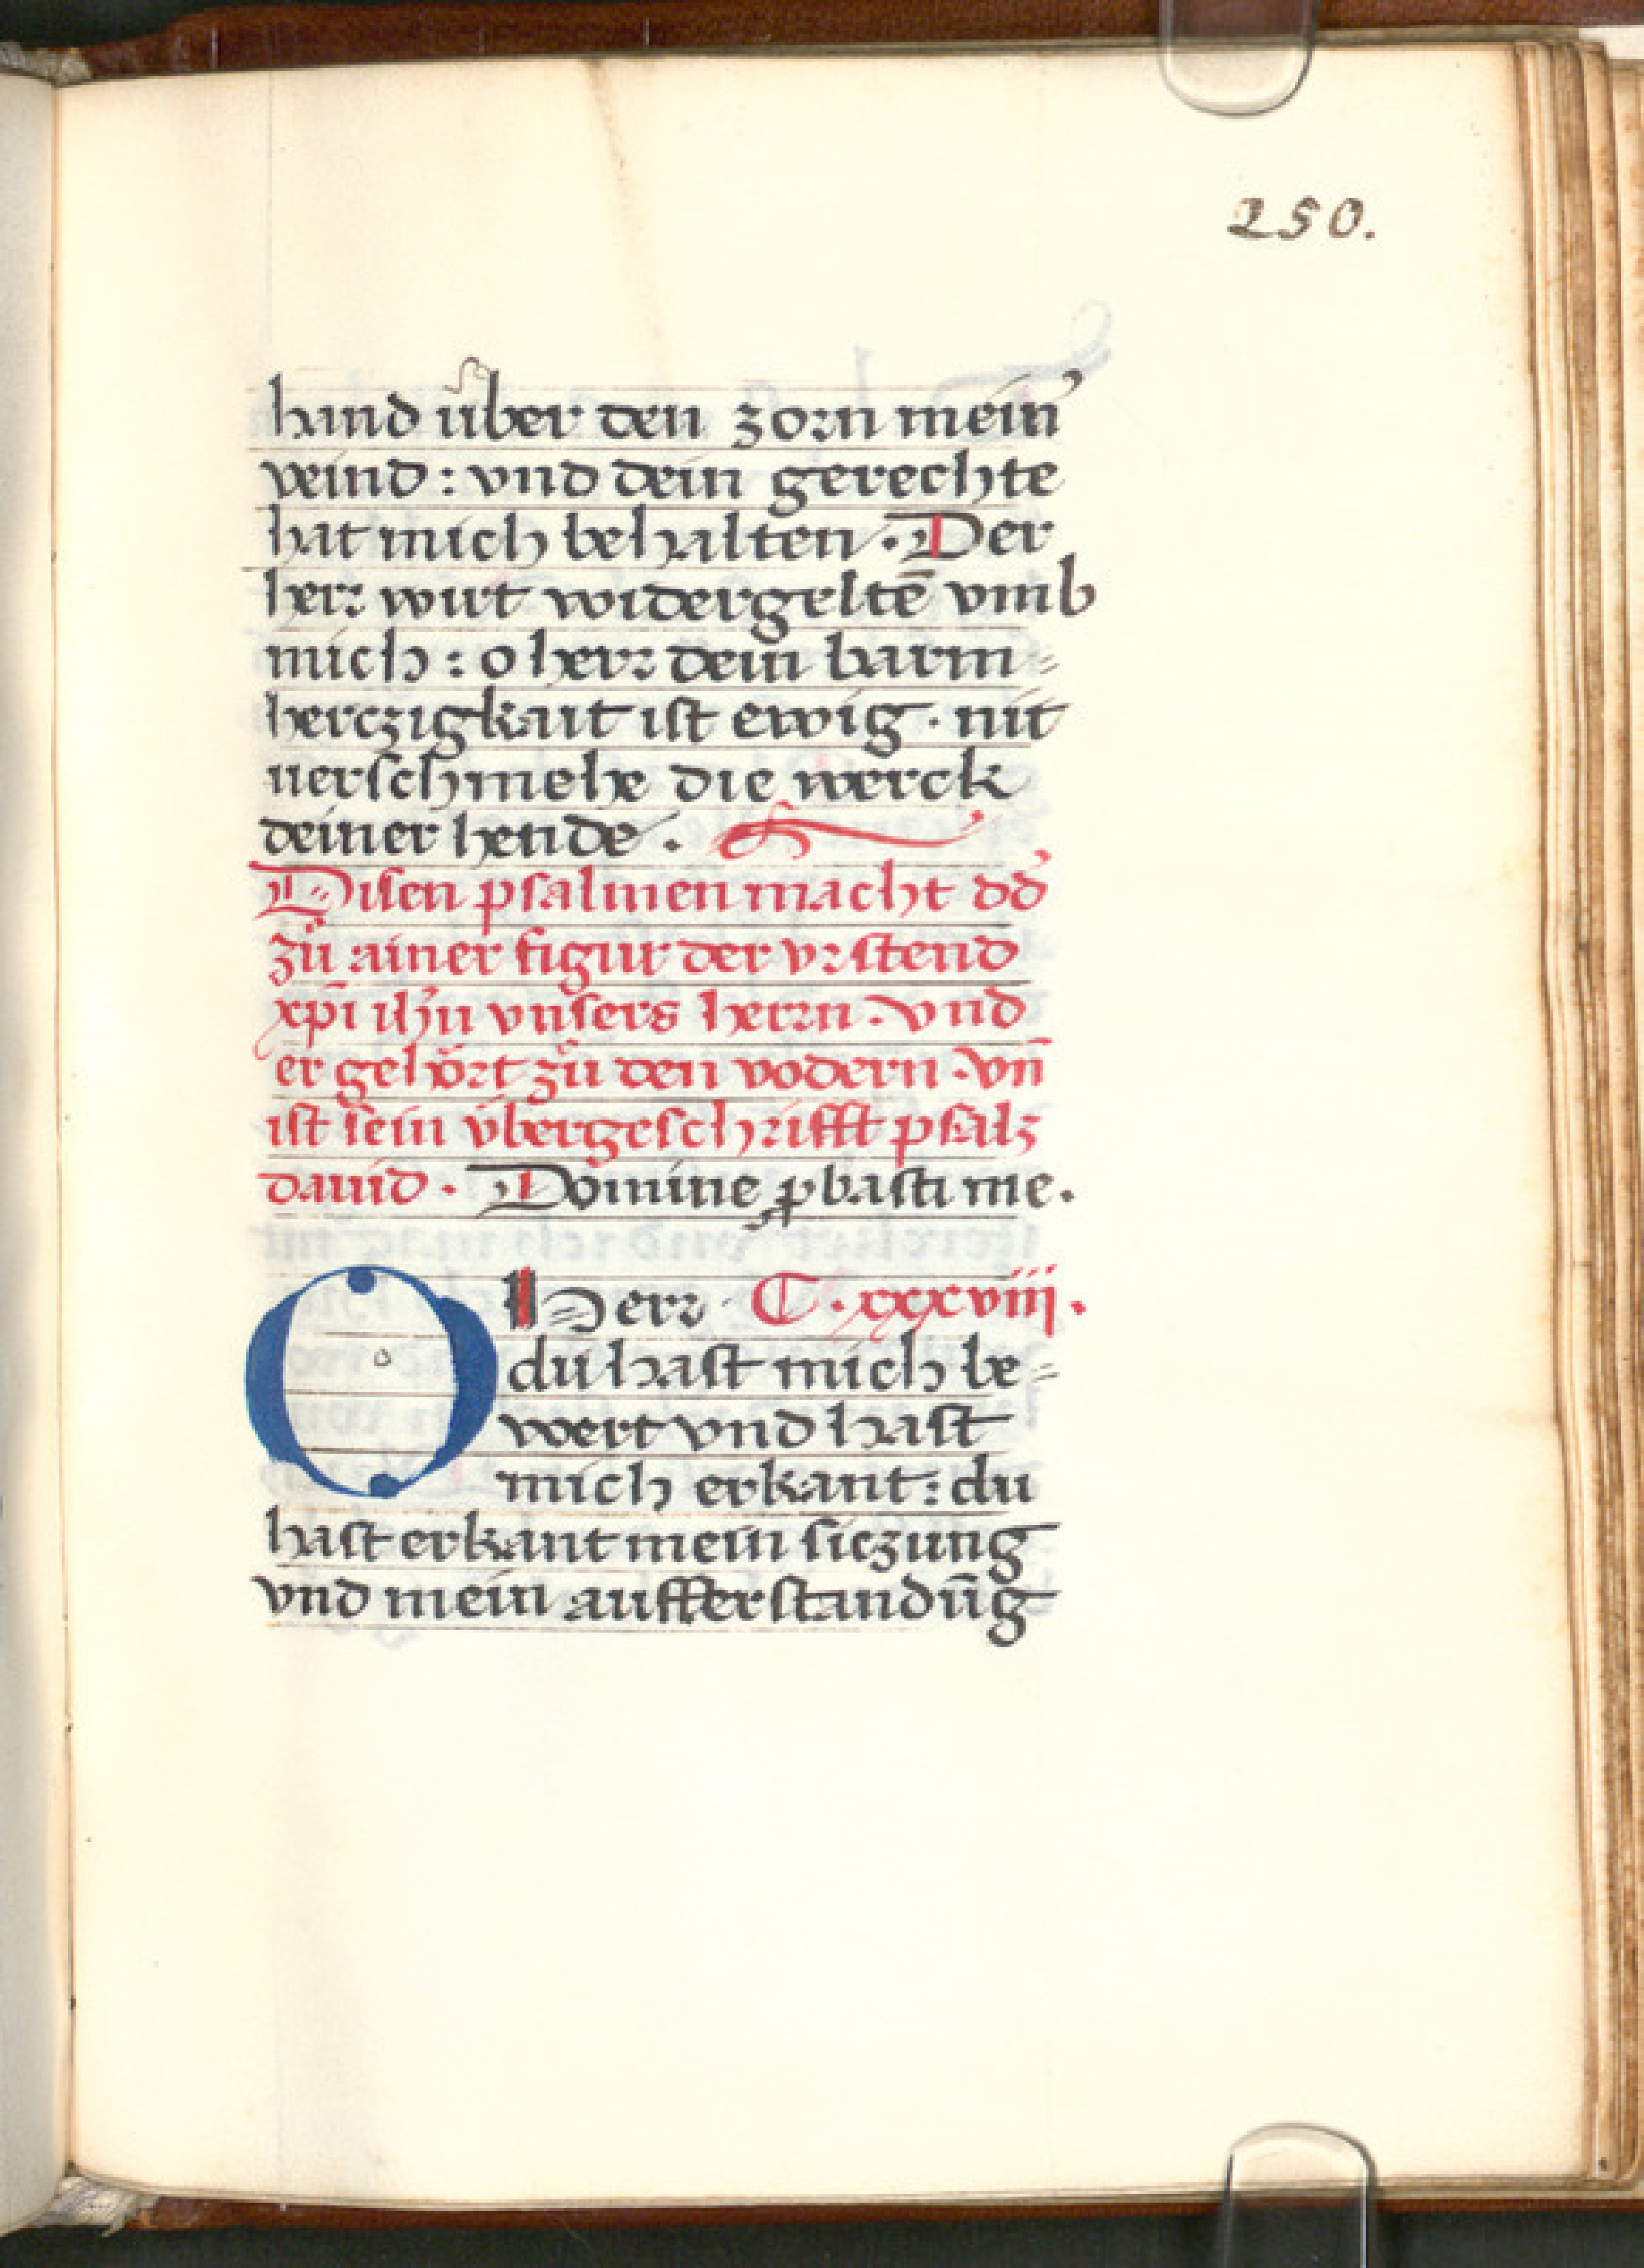 250.
hand über den zorn mein̛
veind : vnd dein gerechte
hat mich behalten · Der
herr wirt widergeltē vmb
mich : o herr dein barm=
herczigkait ist ewig · nit
uerschmehe die werck
deiner hende ·
Disen psalmen macht dd̛
zů ainer figur der vrstend
xp̄i ih̄u vnsers herrn · vnd
er gehört zů den vodern · vn̄
ist sein übergeschrifft psalz
dauid · Domine ꝓbasti me ·
O Herr · C · xxxviij ·
du hast mich be=
wert vnd hast
mich erkant : du
hast erkant mein siczung
vnd mein aufferstandūg